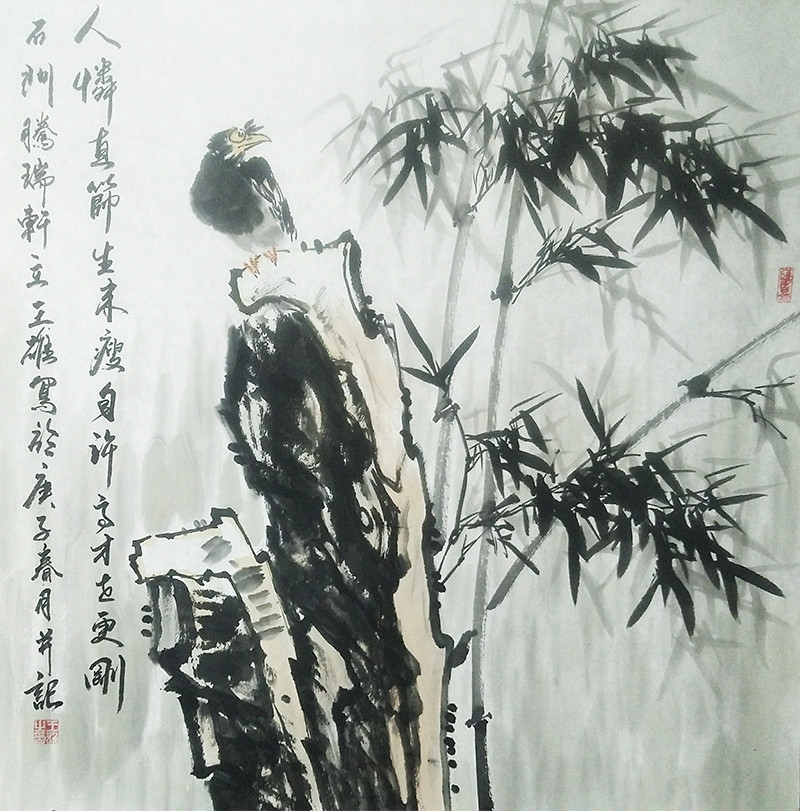 人憐直節生来瘦自許高才老更剛
石州騰瑞軒立王雄寫於庚子春月并記